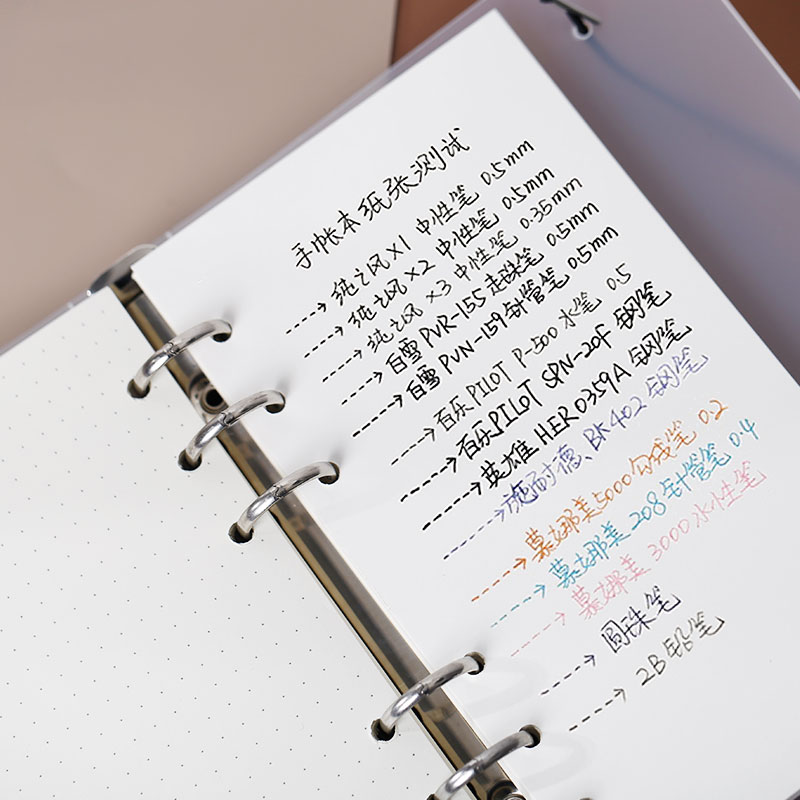 手帐本纸张测试
---→ 纯之风 X1 中性笔 0.5mm
---→ 纯之风 X2 中性笔 0.5mm
---→ 纯之风 X3 中性笔 0.35mm
---→ 白雪 PVR-155 走珠笔 0.5mm
---→ 白雪 PVN-159 针管笔 0.5mm
---→ 百乐 PILOT P-500 水笔 0.5
---→ 百乐 PILOT SPN-20F 钢笔
---→ 英雄 HERO359A 钢笔
---→ 施耐德、BK402 钢笔
---→ 慕娜美 5000 勾线笔 0.2
---→ 慕娜美 208 针管笔 0.4
---→ 慕娜美 3000 水性笔
---→ 圆珠笔
---→ 2B 铅笔